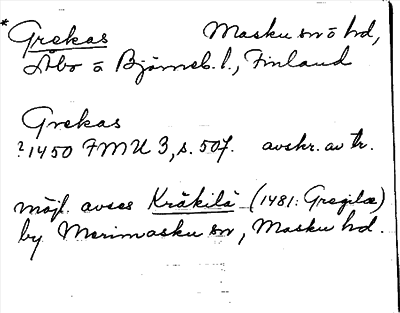 * Grekas Masku sn o hd,
Åbo o Björneb. l., Finland
Grekas
?1450 FMU 3, s. 507. avskr. av tr.
möjl. avses Kråkilä (1481: Gregilæ)
by Merimasku sn, Masku hd.